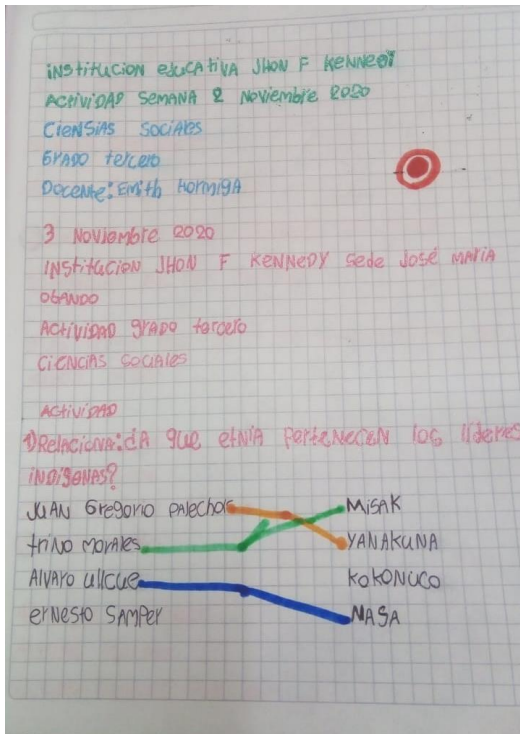 iNStitucion educativa JHON F KENNEDY
ActiviDAD SemANA 2 Noviembre 2020
CieNSiAS Sociales
GRADO tercero
Docente: Emith HormigA
3 Noviembre 2020
INStitucion JHON F KENNEDY Sede José MARIA
OBANDO
ActiviDAD gRADO tercero
CieNciAS Sociales
ActiviDAD
1) RelacionA: ¿A que etNiA PerteNeceN los líderes
iNDigenas?
JUAN Gregorio PAlechor MiSAK
triNo morales YANAKUNA
Alvaro ulicue KOKONUCO
erNesto SAmPer NASA